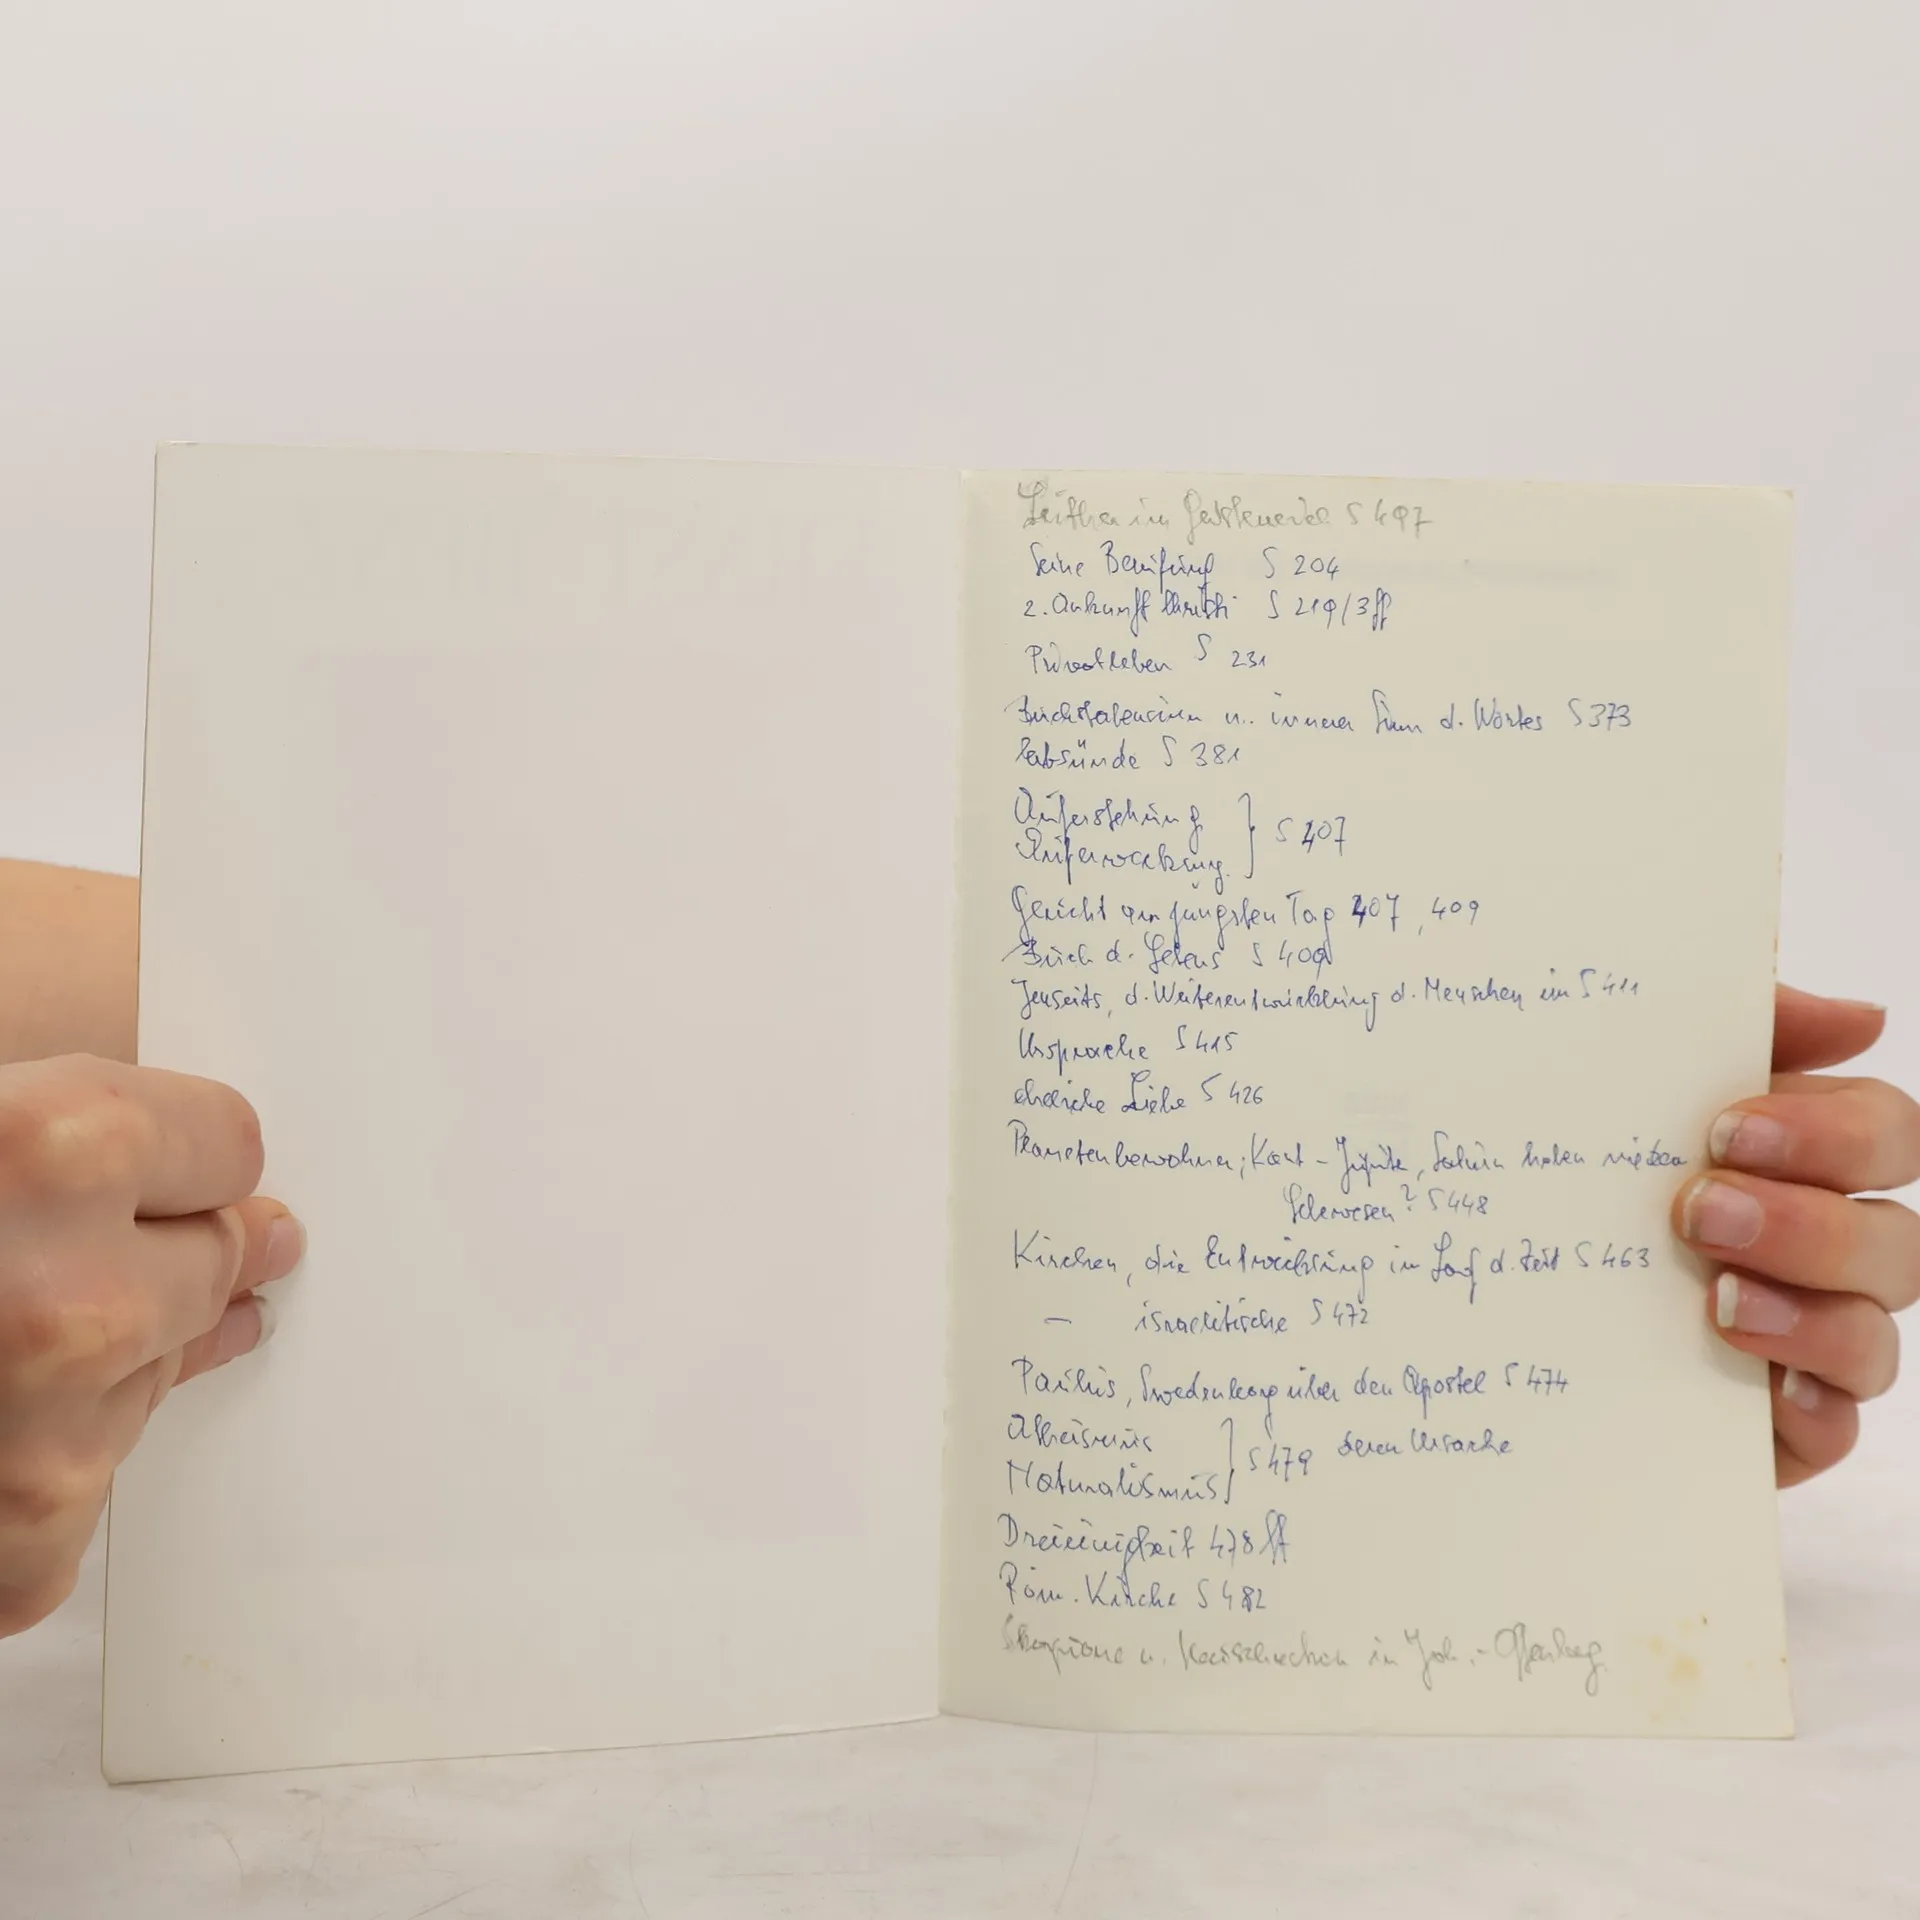 Luther im Geisterreich S 497
Seine Berufung S 204
2. Ankunft Christi S 219/3ff
Privatleben S 231
Buchstabensinn u. innerer Sinn d. Wortes S 373
Erbsünde S 381
Auferstehung
Auferweckung } S 407
Gericht am jüngsten Tag 407, 409
Buch d. Lebens S 409
Jenseits, d. Weiterentwicklung d. Menschen im S 411
Ursprache S 415
eheliche Liebe S 426
Planetenbewohner; Kant - Jupiter, Saturn haben
Lebewesen? S 448
Kirchen, die Entwicklung im Lauf d. Zeit S 463
— israelitische S 472
Paulus, Swedenborg über den Apostel S 474
Atheismus
Naturalismus } S 479 deren Ursache
Dreieinigkeit 478 ff
Röm. Kirche S 482
Skorpione u. Heuschrecken in Joh.-Offenbg.